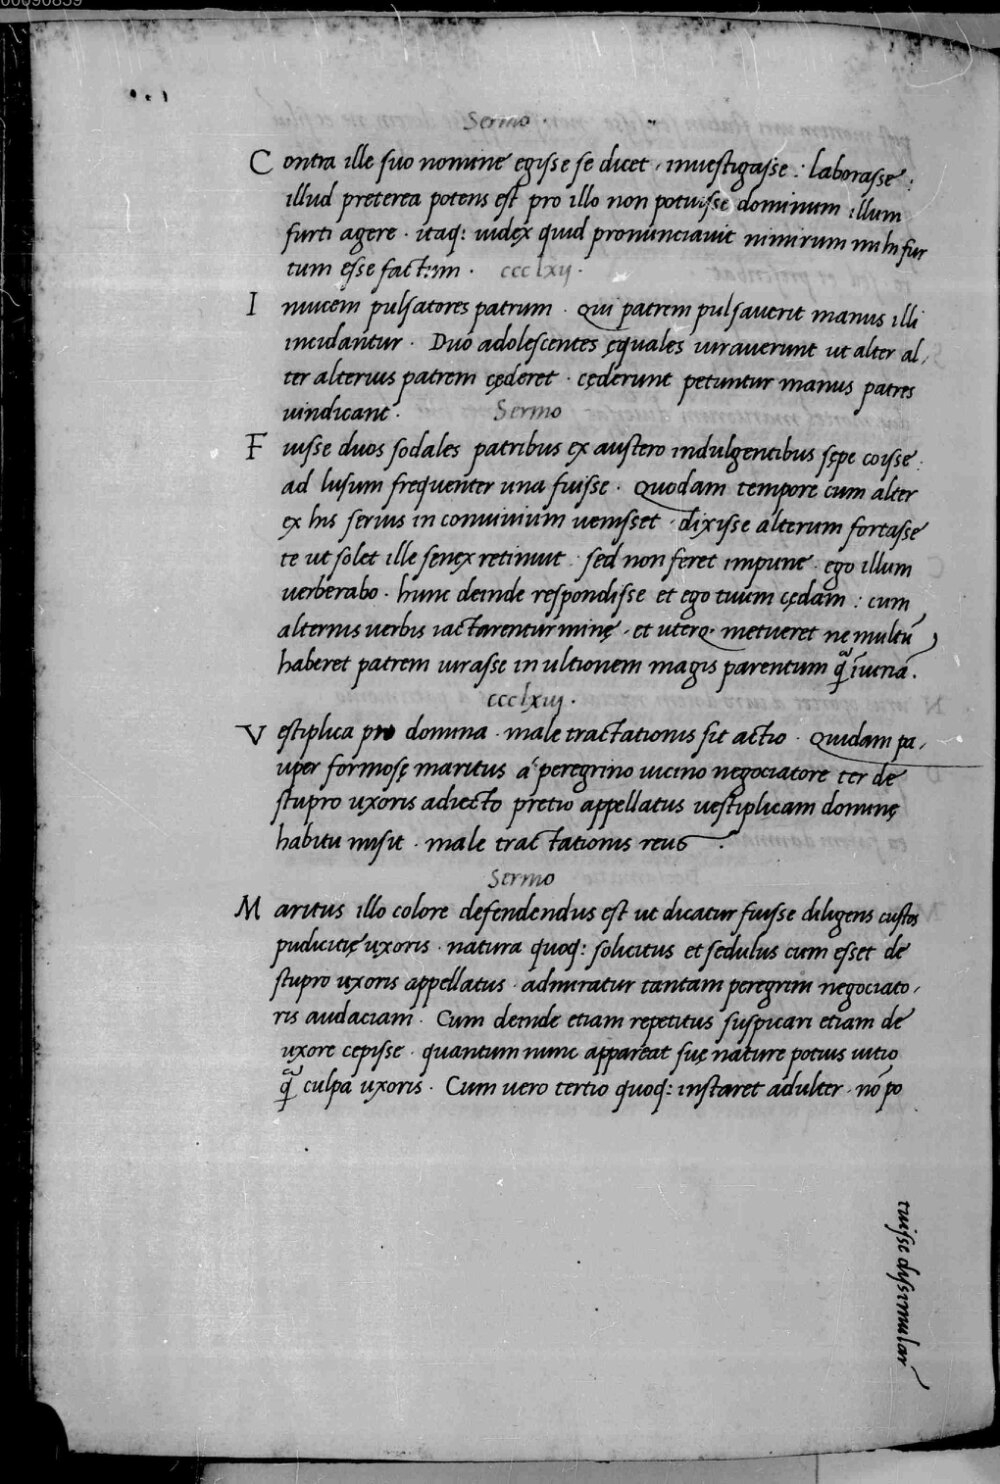 00090859
Sermo ·
C ontra ille suo nomine egisse se dicet · inuestigasse : laborasse :
illud preterea potens est pro illo non potuisse dominum illum
furti agere · itaq: iudex quid pronunciauit nimirum mihi fur
tum esse factum · ccclxii ·
I nuicem pulsatores patrum · Qui patrem pulsauerit manus illi
incidantur · Duo adolescentes ęquales iurauerunt ut alter al,
ter alterius patrem cęderet · cęderunt petuntur manus patres
uindicant · Sermo
F uisse duos sodales patribus ex austero indulgentibus sępe coisse :
ad lusum frequenter una fuisse · Quodam tempore cum alter
ex his serius in conuiuium uenisset · dixisse alterum fortasse
te ut solet ille senex retinuit · sed non feret impune · ego illum
uerberabo · hunc deinde respondisse et ego tuum cędam : cum
alternis uerbis iactarentur minę · et uterq· metueret ne multū
haberet patrem iurasse in ultionem magis parentum q̄ iniuriā .
ccclxiii ·
V estiplica pro domina · male tractationis sit actio · Quidam pa,
uper formosę maritus a peregrino uicino negociatore ter de
stupro uxoris adiecto pretio appellatus uestiplicam dominę
habitu misit · male tractationis reus ·
Sermo
M aritus illo colore defendendus est ut dicatur fuisse diligens custos
pudicitię uxoris · natura quoq: solicitus et sedulus cum esset de
stupro uxoris appellatus · admiratur tantam peregrini negociato,
ris audaciam · Cum deinde etiam repetitus suspicari etiam de
uxore cepisse · quantum nunc appareat suę nature potius uitio
q̄ culpa uxoris · Cum uero tertio quoq: instaret adulter · nō po
tuisse dissimular